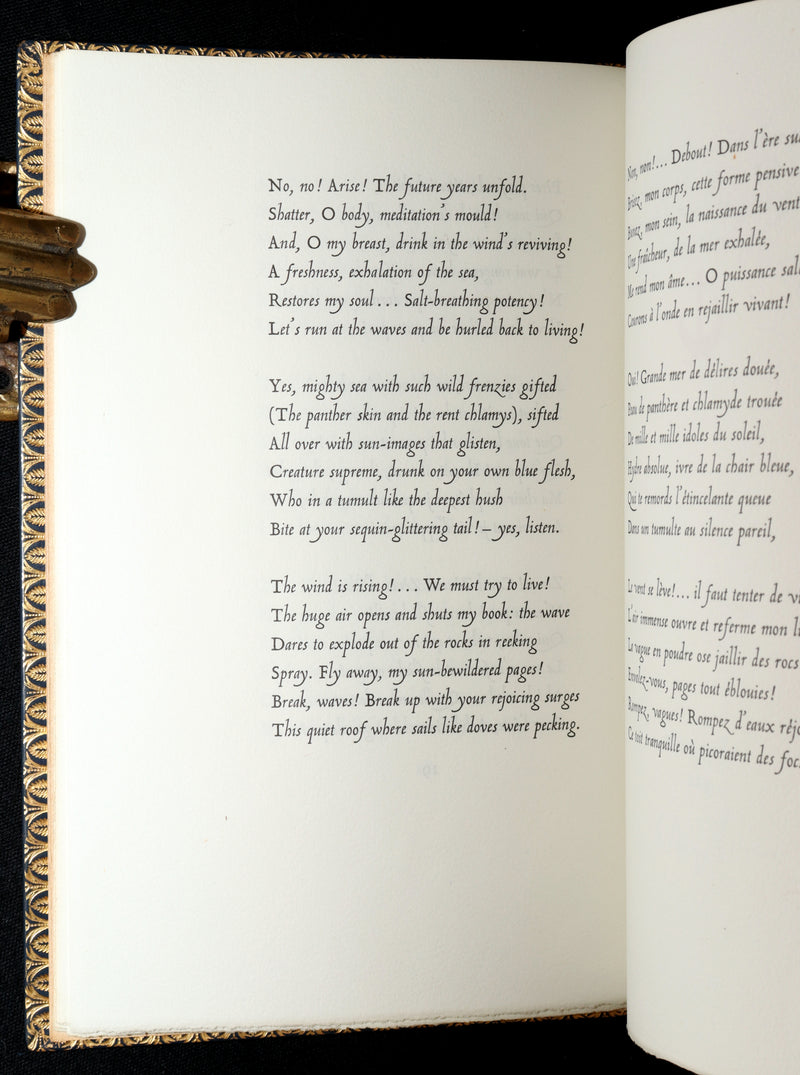 No, no! Arise! The future years unfold.
Shatter, O body, meditation's mould!
And, O my breast, drink in the wind's reviving!
A freshness, exhalation of the sea,
Restores my soul . . . Salt-breathing potency!
Let's run at the waves and be hurled back to living!

Yes, mighty sea with such wild frenzies gifted
(The panther skin and the rent chlamys), sifted
All over with sun-images that glisten,
Creature supreme, drunk on your own blue flesh,
Who in a tumult like the deepest hush
Bite at your sequin-glittering tail! – yes, listen.

The wind is rising! . . . We must try to live!
The huge air opens and shuts my book: the wave
Dares to explode out of the rocks in reeking
Spray. Fly away, my sun-bewildered pages!
Break, waves! Break up with your rejoicing surges
This quiet roof where sails like doves were pecking.

Non, non! . . . Debout! Dans l'ère
Brisez, mon corps, cette forme pensive
Buvez, mon sein, la naissance du vent
Une fraîcheur, de la mer exhalée,
Me rend mon âme . . . O puissance
Courons à l'onde en rejaillir vivant!

Oui! Grande mer de délires douée,
Peau de panthère et chlamyde trouée
De mille et mille idoles du soleil,
Hydre absolue, ivre de la chair bleue,
Qui te remords l'étincelante queue
Dans un tumulte au silence pareil,

Le vent se lève! . . . il faut tenter de
L'air immense ouvre et referme mon
La vague en poudre ose jaillir des rocs
Envolez-vous, pages tout éblouies!
Rompez, vagues! Rompez d'eaux
Ce toit tranquille où picoraient des